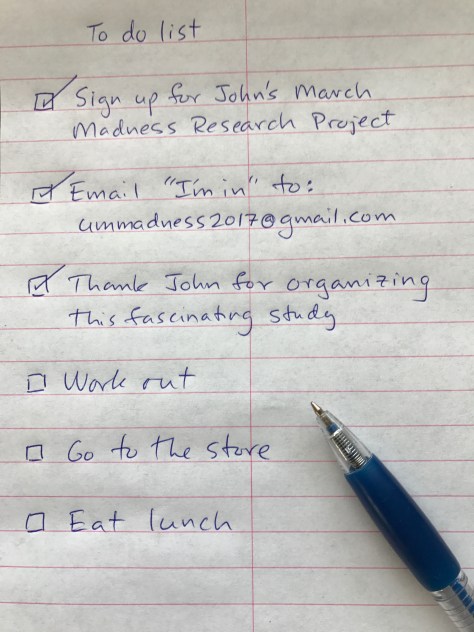 To do list
Sign up for John's March
Madness Research Project
Email "I'm in" to:
ummadness2017@gmail.com
Thank John for organizing
this fascinating study
Work out
Go to the store
Eat lunch